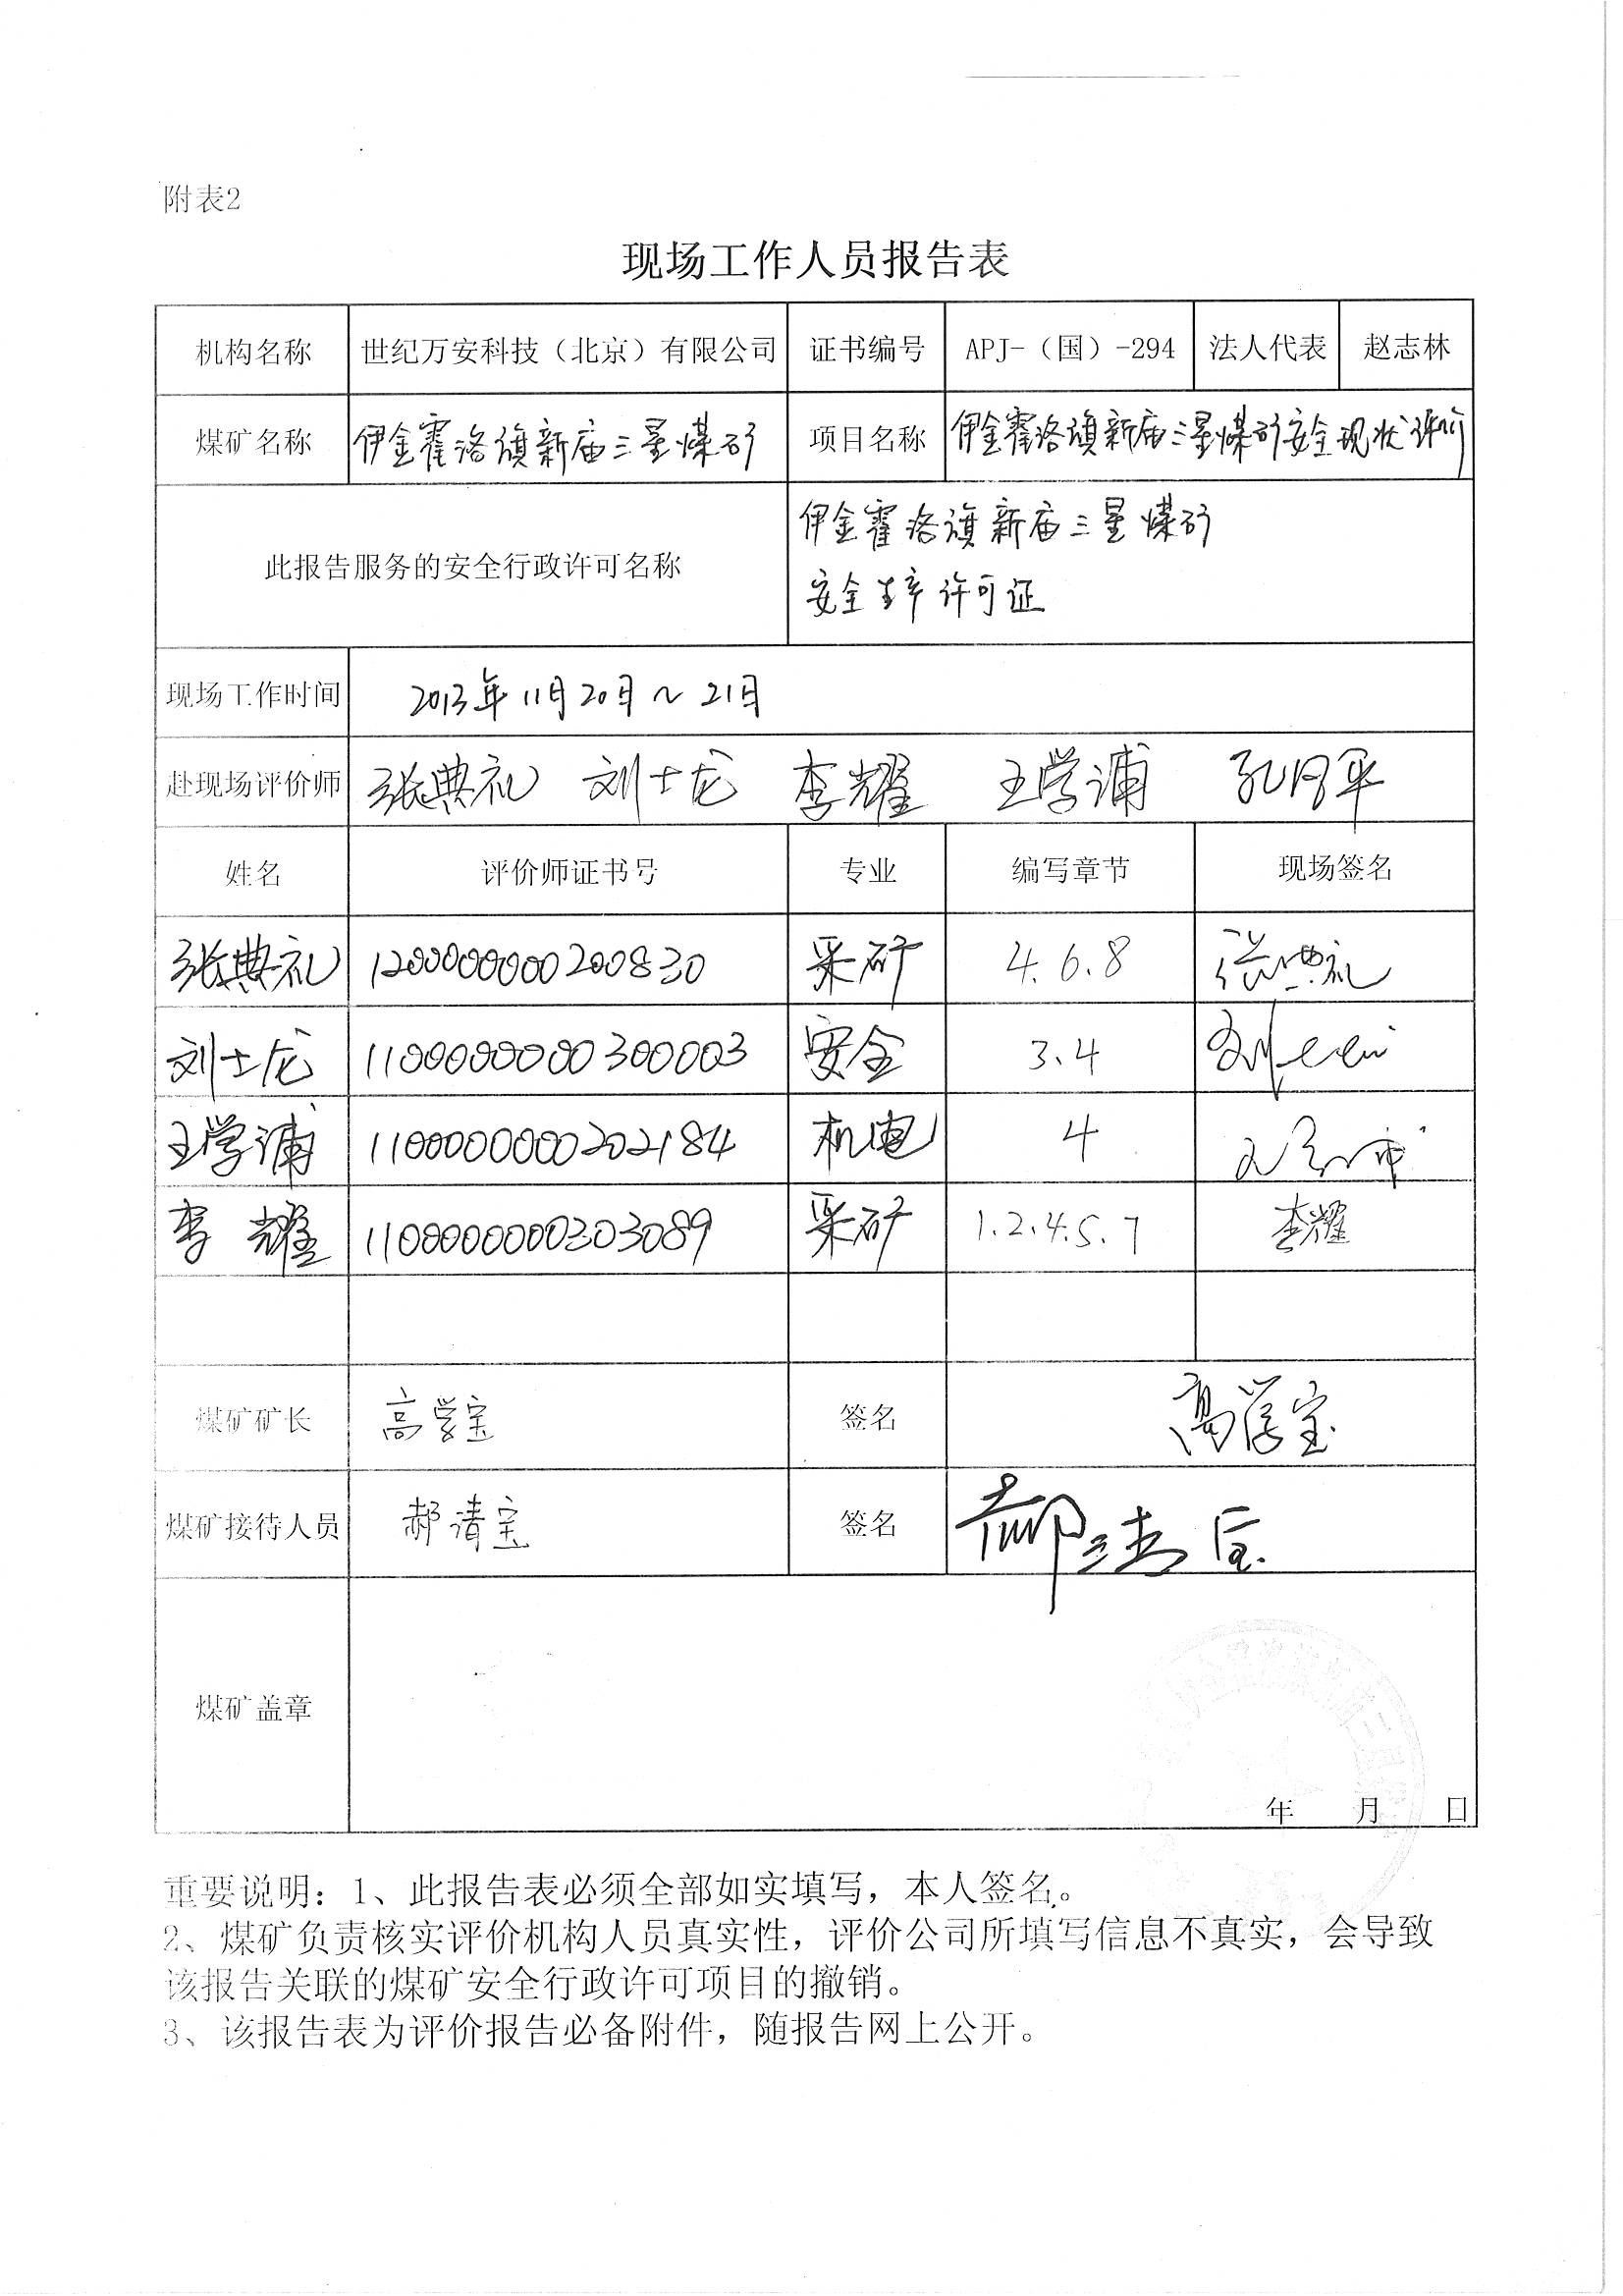 附表2
现场工作人员报告表
机构名称 世纪万安科技（北京）有限公司 证书编号 APJ-（国）-294 法人代表 赵志林
煤矿名称 伊金霍洛旗新庙三星煤矿 项目名称 伊金霍洛旗新庙三星煤矿安全现状评价
此报告服务的安全行政许可名称 伊金霍洛旗新庙三星煤矿
安全生产许可证
现场工作时间 2013年11月20日~21日
赴现场评价师 张典礼 刘士龙 李耀 王学浦 孔月平
姓名 评价师证书号 专业 编写章节 现场签名
张典礼 1200000000200830 采矿 4.6.8 张典礼
刘士龙 1100000000300003 安全 3、4
王学浦 1100000000202184 机电 4
李耀 1100000000203089 采矿 1.2.4.5.7 李耀
煤矿矿长 高学宝 签名 高学宝
煤矿接待人员 郝清宝 签名 郝清宝
煤矿盖章
年 月 日
重要说明：1、此报告表必须全部如实填写，本人签名。
2、煤矿负责核实评价机构人员真实性，评价公司所填写信息不真实，会导致
该报告关联的煤矿安全行政许可项目的撤销。
3、该报告表为评价报告必备附件，随报告网上公开。